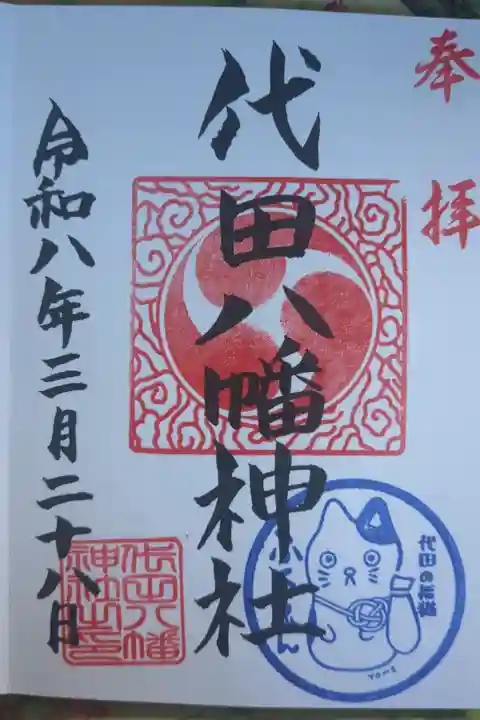 奉拝
代田八幡神社
令和八年三月二十八日
代田八幡
神社之印
TOMO